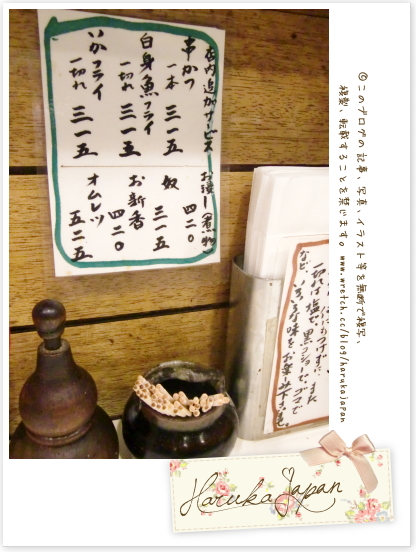 店内追加サービス
串かつ
一本 三一五
白身魚フライ
一切れ 三一五
いかフライ
一切れ 三一五
お浸し(煮物)
四二〇
奴
三一五
お新香
四二〇
オムレツ
五二五
など、いろいろな味をお楽しみ下さいませ
©このブログの記事、写真、イラスト等を無断で複写、
複製、転載することを禁じます。www.wretch.cc/blog/harukajapan
Haruka Japan